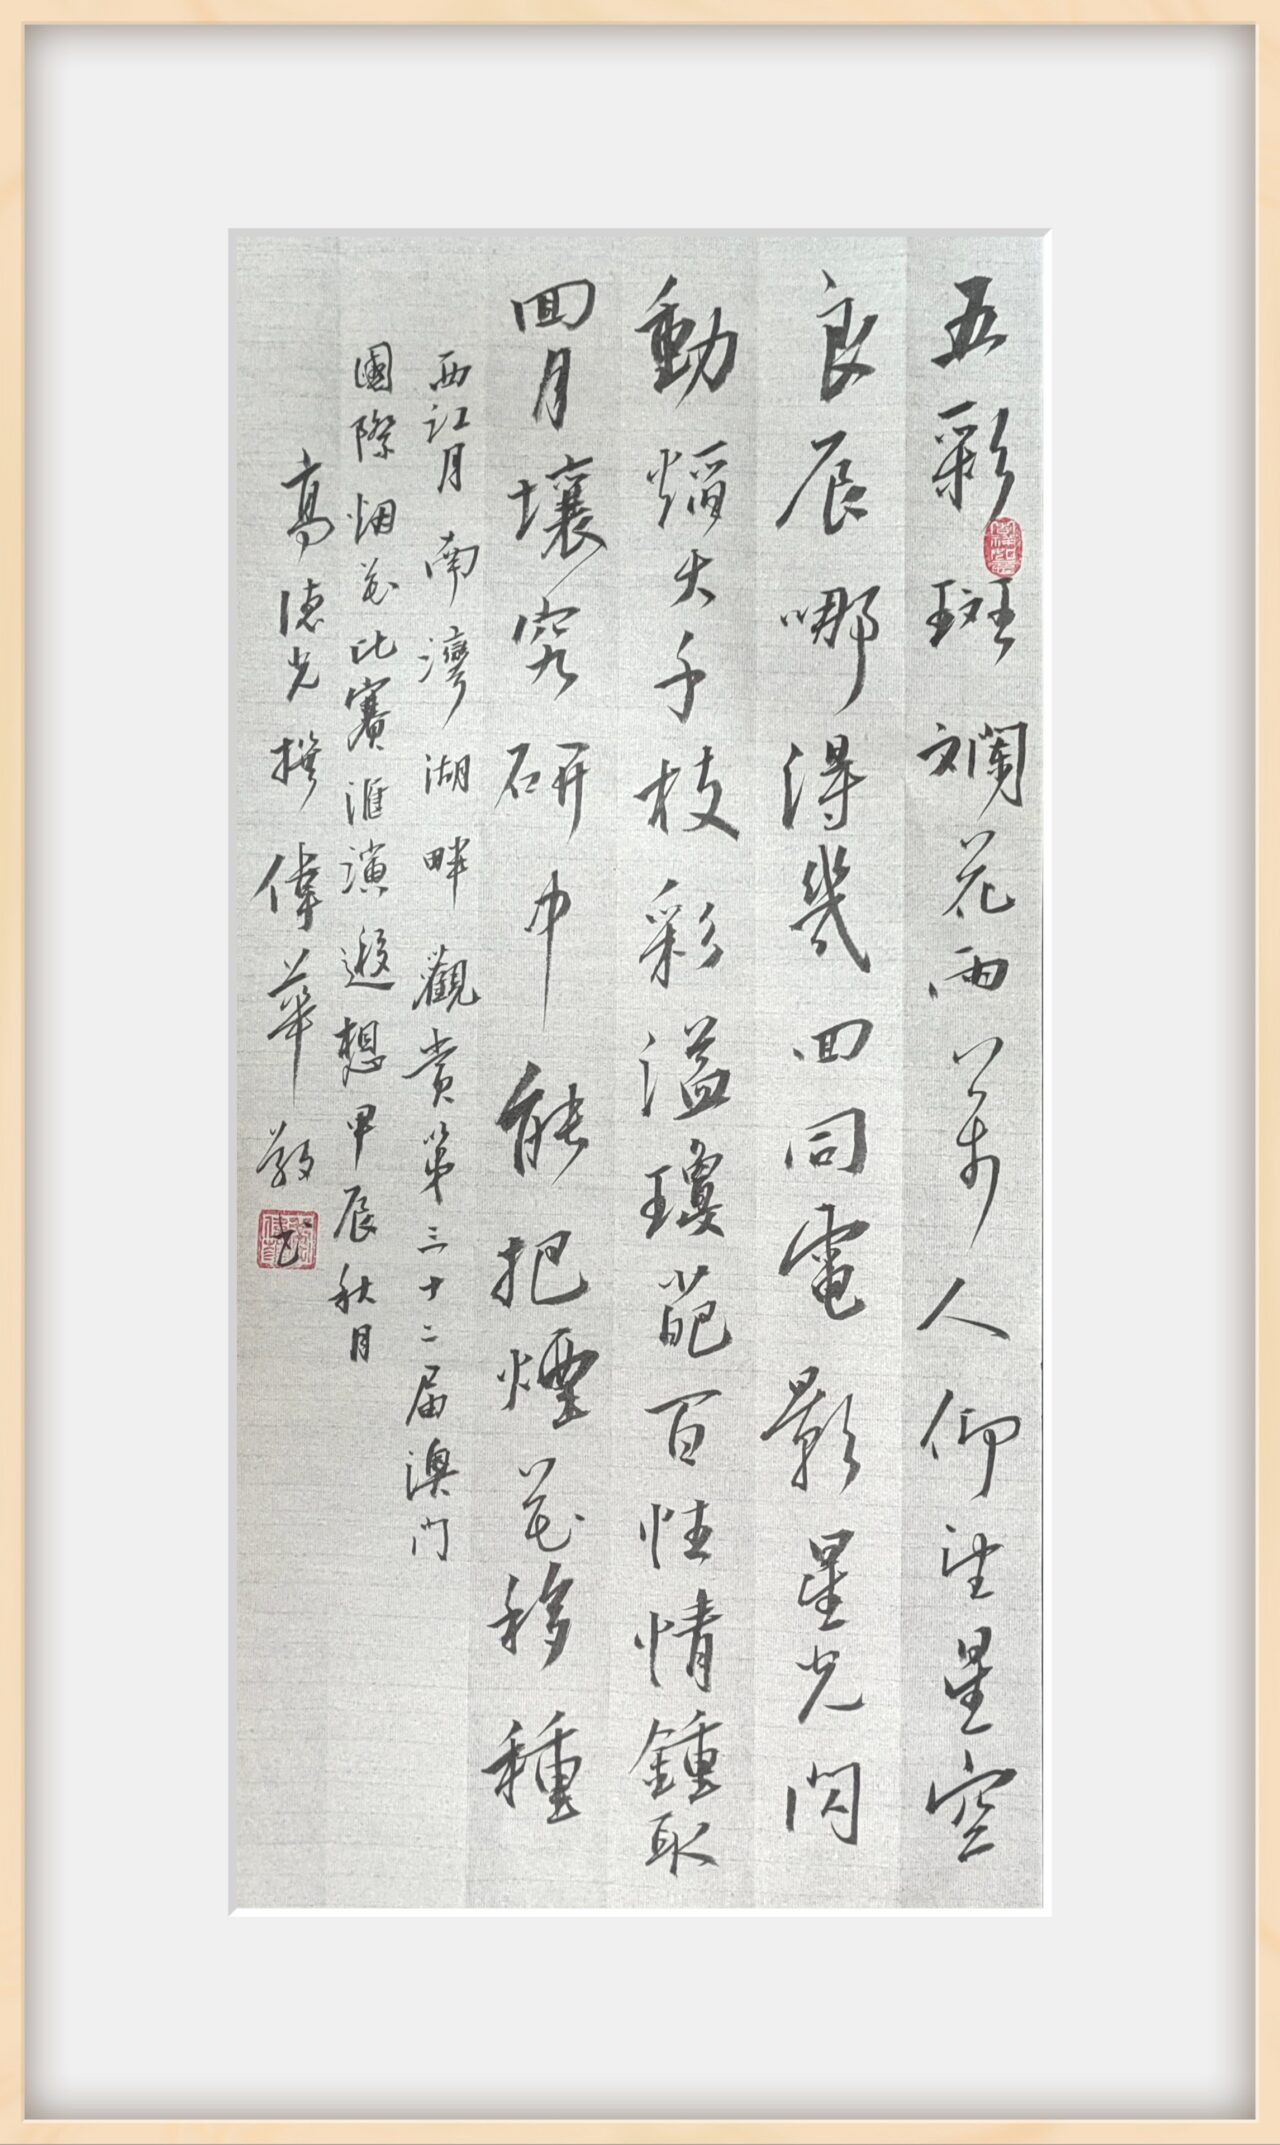 五彩斑斕花雨萬人仰望星空
良辰哪得幾回同電影星光閃
動爓火千枝彩溢瓊葩百性情鍾取
回月壤究研中能把煙花移種
西江月南灣湖畔觀賞第三十二屆澳門
國際烟花比賽滙演遐想甲辰秋月
高德光撰偉華敬